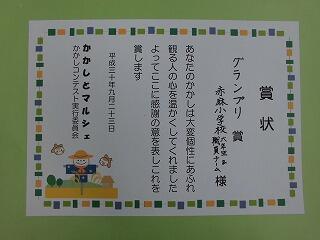 賞状
グランプリ賞
赤麻小学校 六年生&職員チーム 様
あなたのかかしは大変個性にあふれ
観る人の心を温かくしてくれました
よってここに感謝の意を表しこれを
賞します
平成三十年九月二十三日
かかしとマルシェ
かかしコンテスト実行委員会